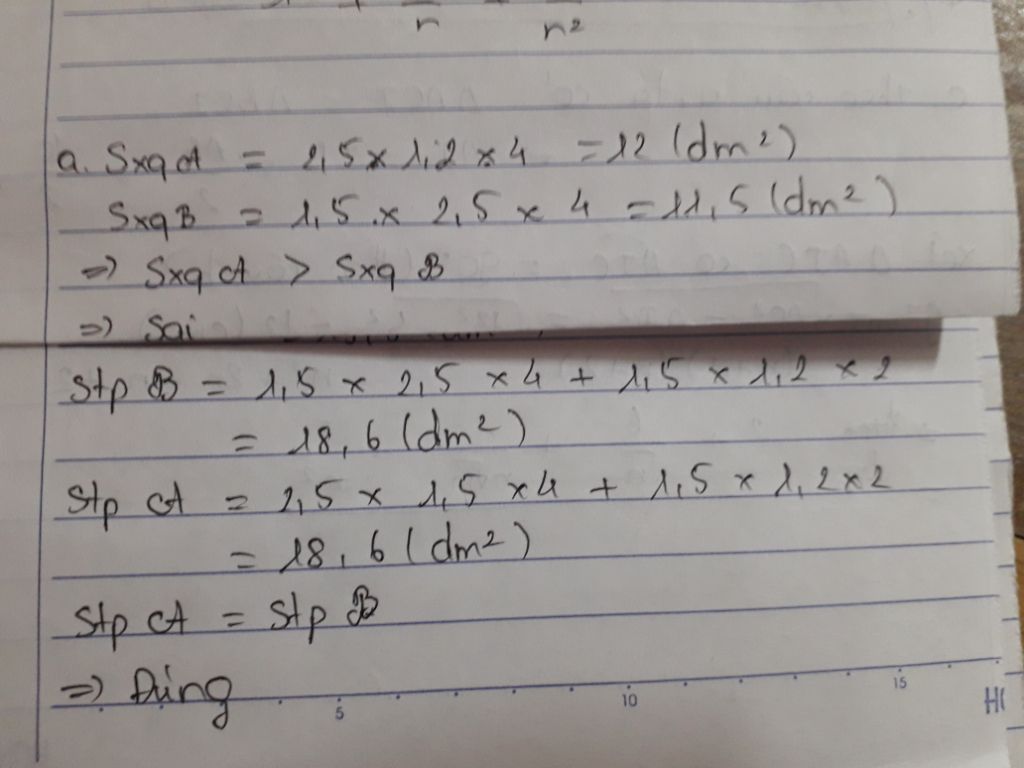 r r²
a. Sxq A = 2,5 x 1,2 x 4 = 12 (dm²)
Sxq B = 1,5 x 2,5 x 4 = 11,5 (dm²)
=> Sxq A > Sxq B
=> Sai
Stp B = 1,5 x 2,5 x 4 + 1,5 x 1,2 x 2
= 18,6 (dm²)
Stp A = 2,5 x 1,5 x 4 + 1,5 x 1,2 x 2
= 18,6 (dm²)
Stp A = Stp B
=> Đúng
5 10 15